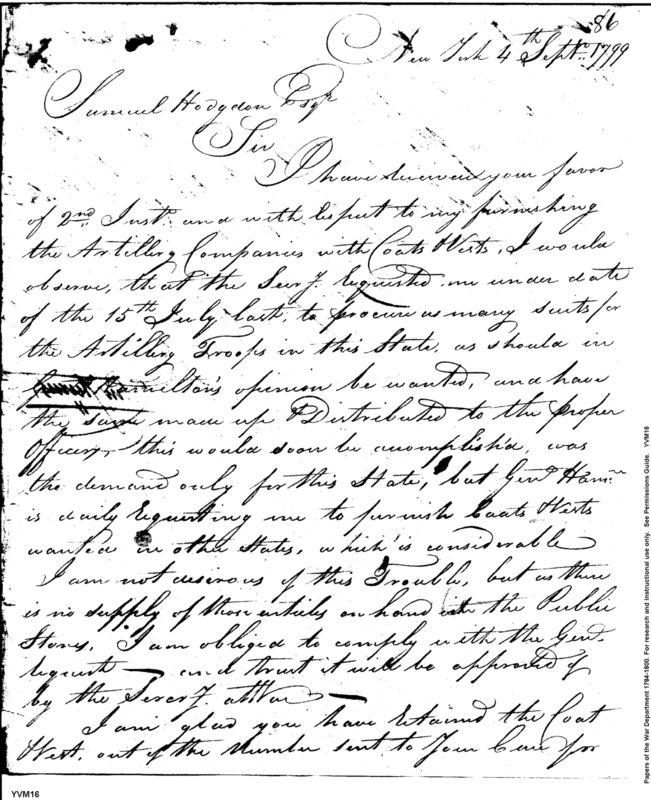 86
New York 4th Septr. 1799
Samuel Hodgdon Esqr
Sir
I have received your favor
of 2nd Inst. and with respect to my furnishing
the Artillery Companies with Coats Vests, I would
observe, that the Secry. requested me under date
of the 15th July last, to procure as many suits for
the Artillery Troops in this State, as should in
Hamilton's opinion be wanted, and have
the same made up & Distributed to the proper
Officers, this would soon be acomplish'd, was
the demand only for this State, but Genl. Ham.
is daily requesting me to furnish Coats Vests
wanted in other States, which is considerable
I am not desirous of this Trouble, but as there
is no supply of those articles on hand in the Public
Stores, I am obliged to comply with the Genl.
request — and trust it will be approved of
by the Secry. at War —
I am glad you have retained the Coat
Vest, out of the Number sent to Your Care for
YVM16
Papers of the War Department 1784-1800. For research and instructional use only. See Permissions Guide. YVM16